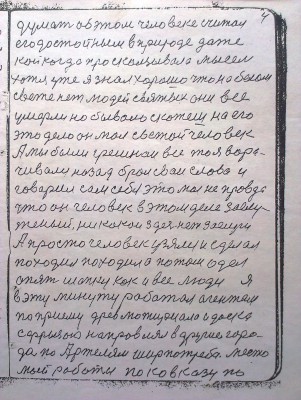 4
думат об этом человеке считал
его достойным в природе даже
кой когда проскальзывала мысел
хотя уже я знал хорошо что на белом
свете нет людей святых они все
умерли но бывало скотеш на его
это дело он мол светой человек
А мы были грешнаи все то я вора-
чивал назад брал сваи слова и
говарил сам себе это мол не правда
что он человек в этом деле заслу-
женый, никакой здея нет заслуги
А просто человек узял и сделал
походил походил а потом одел
опят шапку как и все люди Я
в эту минуту работал агентам
по приему древ потцриала и доска
с фрызою направлял в другие горо-
да по Артелям ширпотреба. место
моей работы по ковказу по